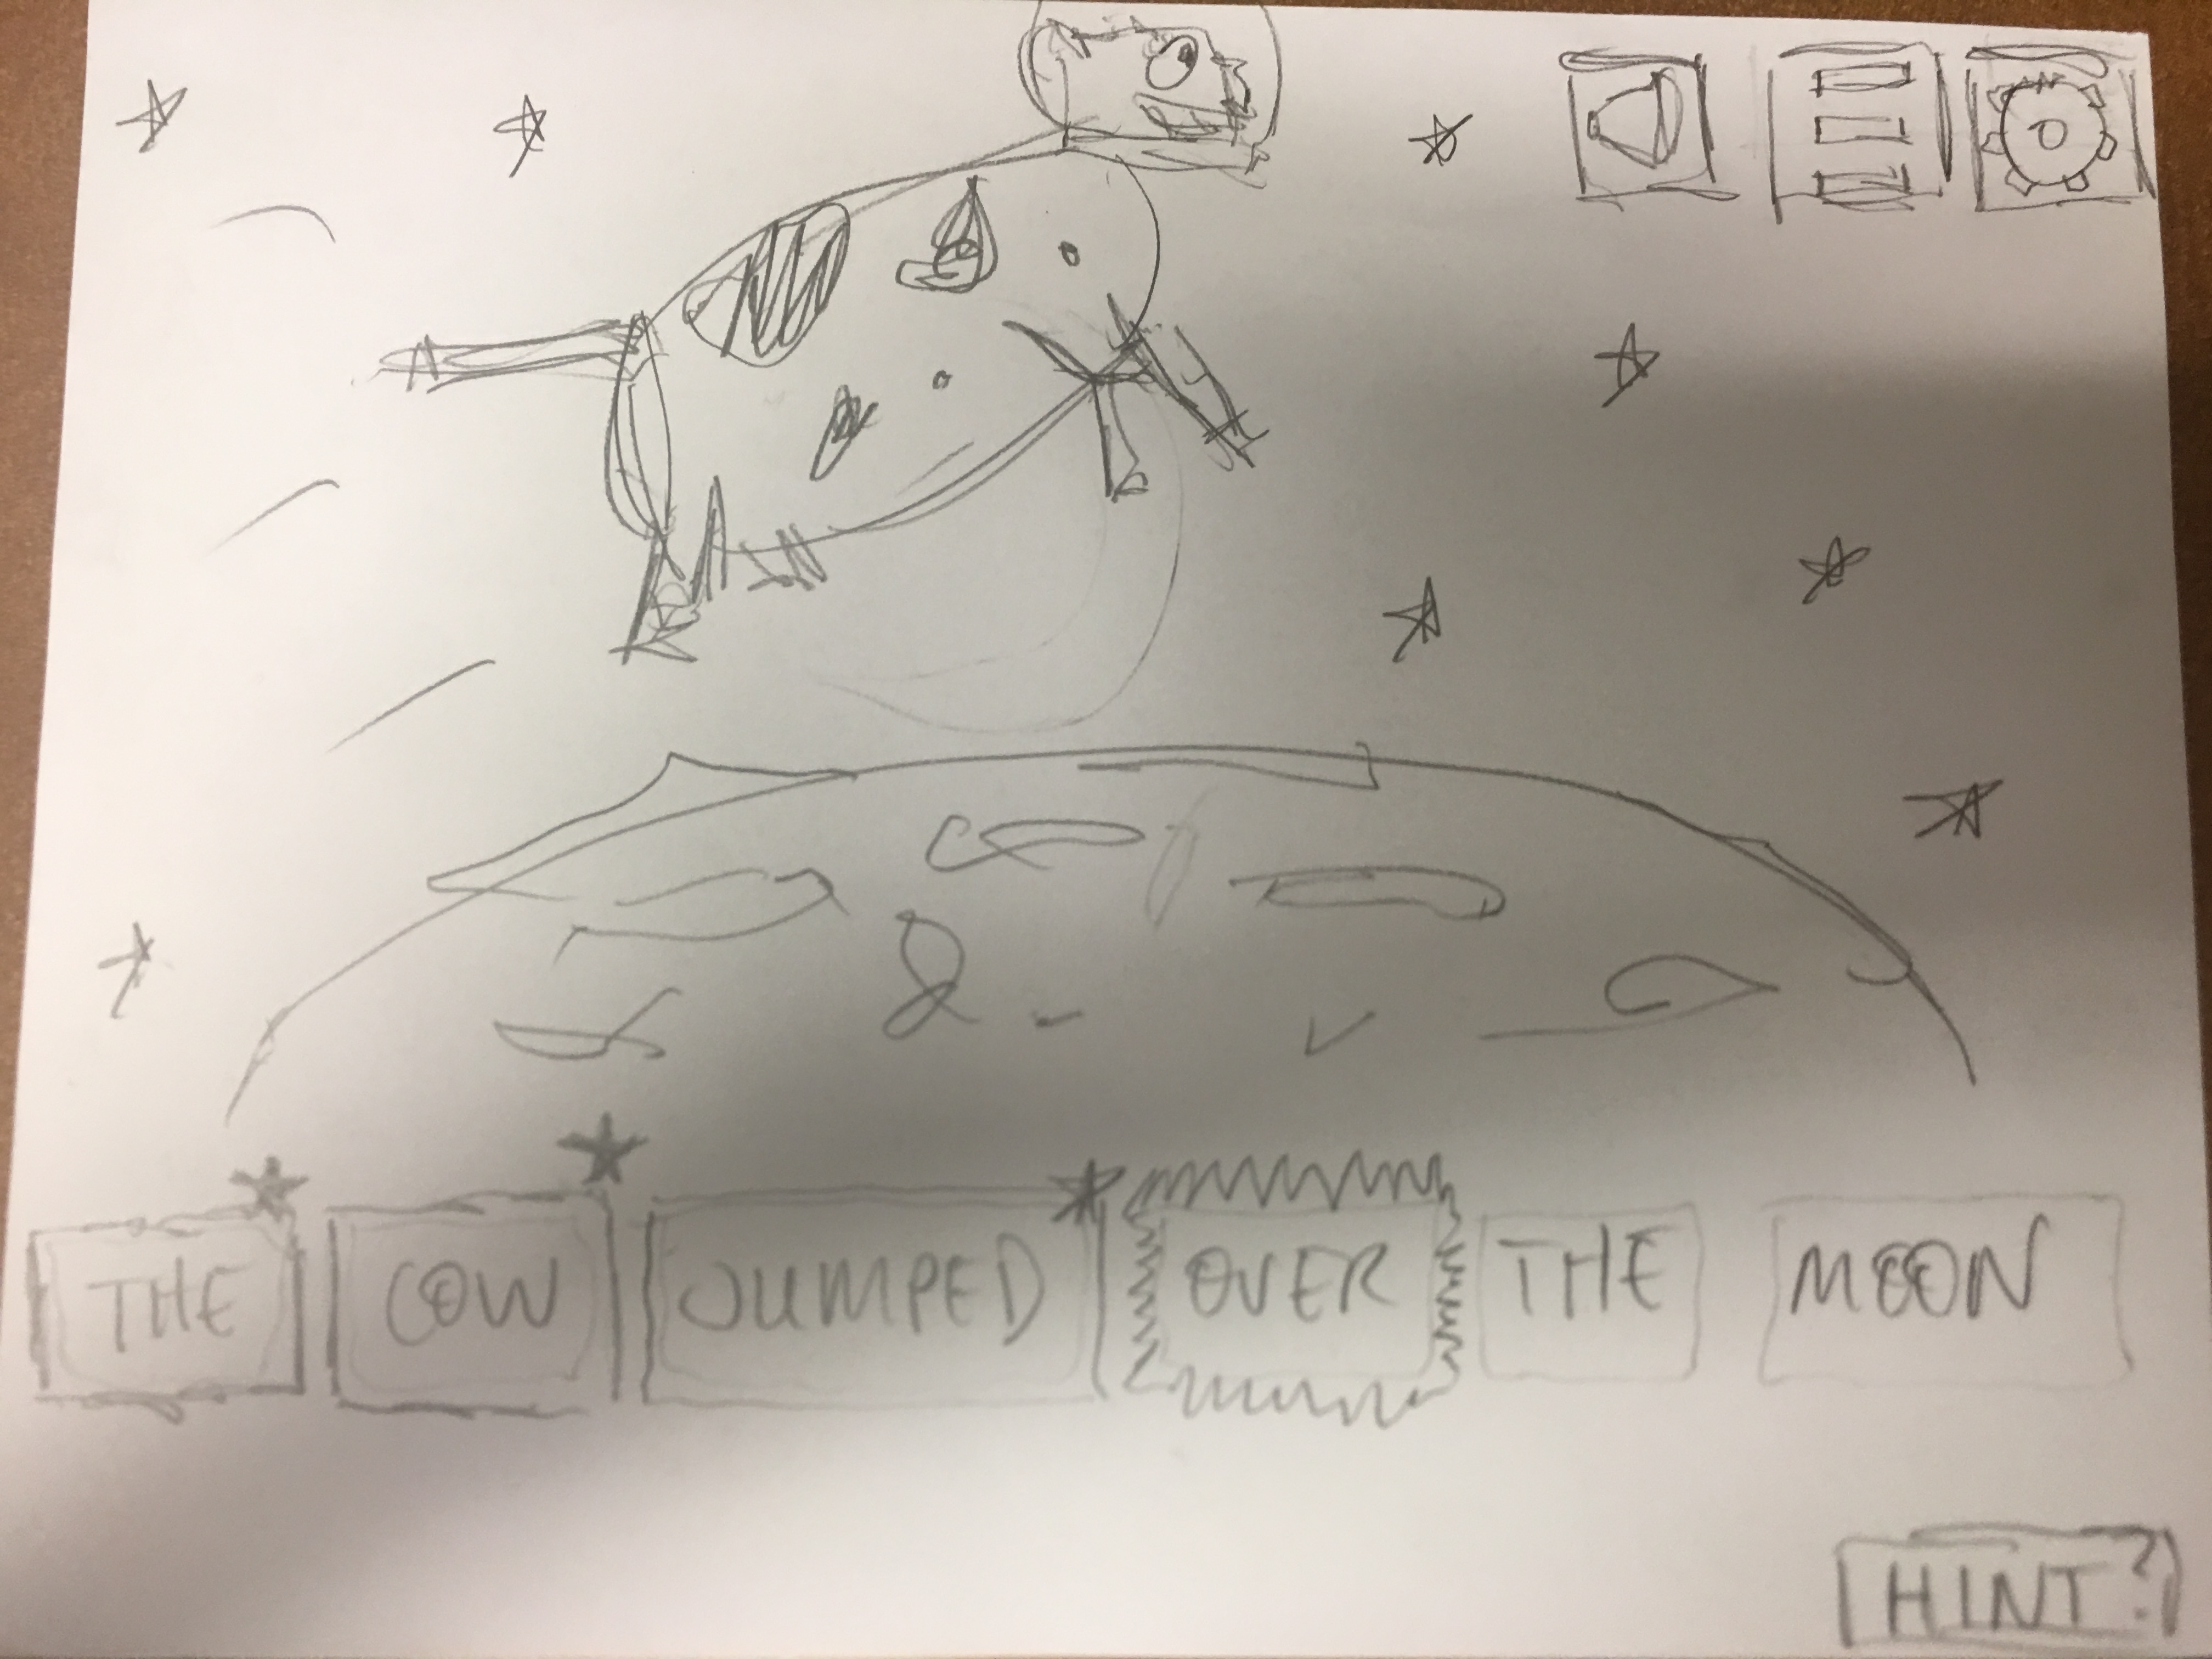 THE COW JUMPED OVER THE MOON
HINT?